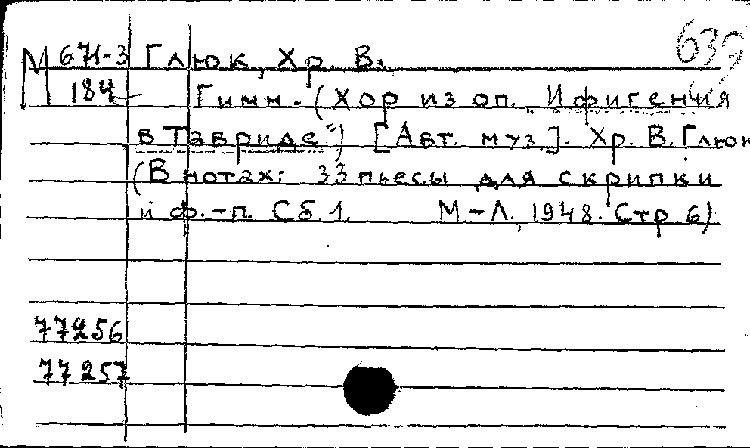 М 671-3 Глюк, Хр. В.
184 Гимн. (Хор из оп. „Ифигения
в Тавриде“) [Авт. муз.]. Хр. В. Глюк
(В нотах: 33 пьесы для скрипки
и ф.-п. Сб 1. М-Л, 1948. Стр 6)
77256
77257